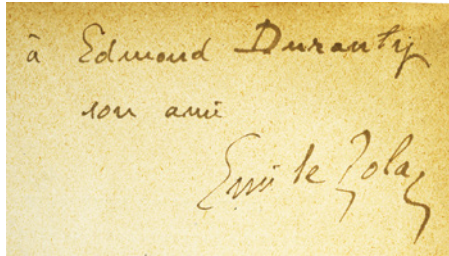 à Edmond Duranty
son ami
Emile Zola